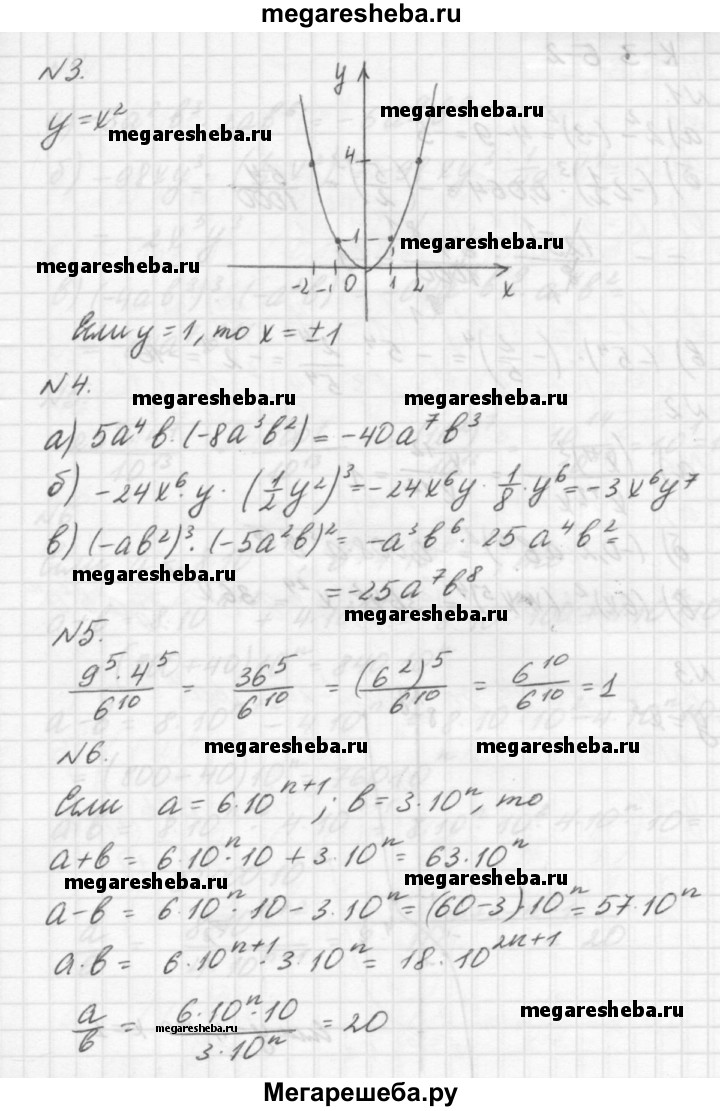 megaresheba.ru
№3.
y = x²
megaresheba.ru
y
megaresheba.ru
4
1
megaresheba.ru
-2 -1 0 1 2 x
Если y = 1, то x = ±1
№4.
megaresheba.ru
megaresheba.ru
а) 5a⁴b·(-8a³b²) = -40a⁷b³
б) -24x⁶·y·(1/2 y²)³ = -24x⁶y·1/8·y⁶ = -3x⁶y⁷
в) (-ab²)³·(-5a²b)² = -a³b⁶·25a⁴b² =
megaresheba.ru
= -25a⁷b⁸
megaresheba.ru
№5.
9⁵·4⁵/6¹⁰ = 36⁵/6¹⁰ = (6²)⁵/6¹⁰ = 6¹⁰/6¹⁰ = 1
№6.
megaresheba.ru
megaresheba.ru
Если a = 6·10ⁿ⁺¹; b = 3·10ⁿ, то
a+b = 6·10ⁿ·10 + 3·10ⁿ = 63·10ⁿ
megaresheba.ru
megaresheba.ru
a-b = 6·10ⁿ·10 - 3·10ⁿ = (60-3)10ⁿ = 57·10ⁿ
a·b = 6·10ⁿ⁺¹·3·10ⁿ = 18·10²ⁿ⁺¹
a/b = 6·10ⁿ·10/3·10ⁿ = 20
megaresheba.ru
megaresheba.ru
Мегарешеба.ру